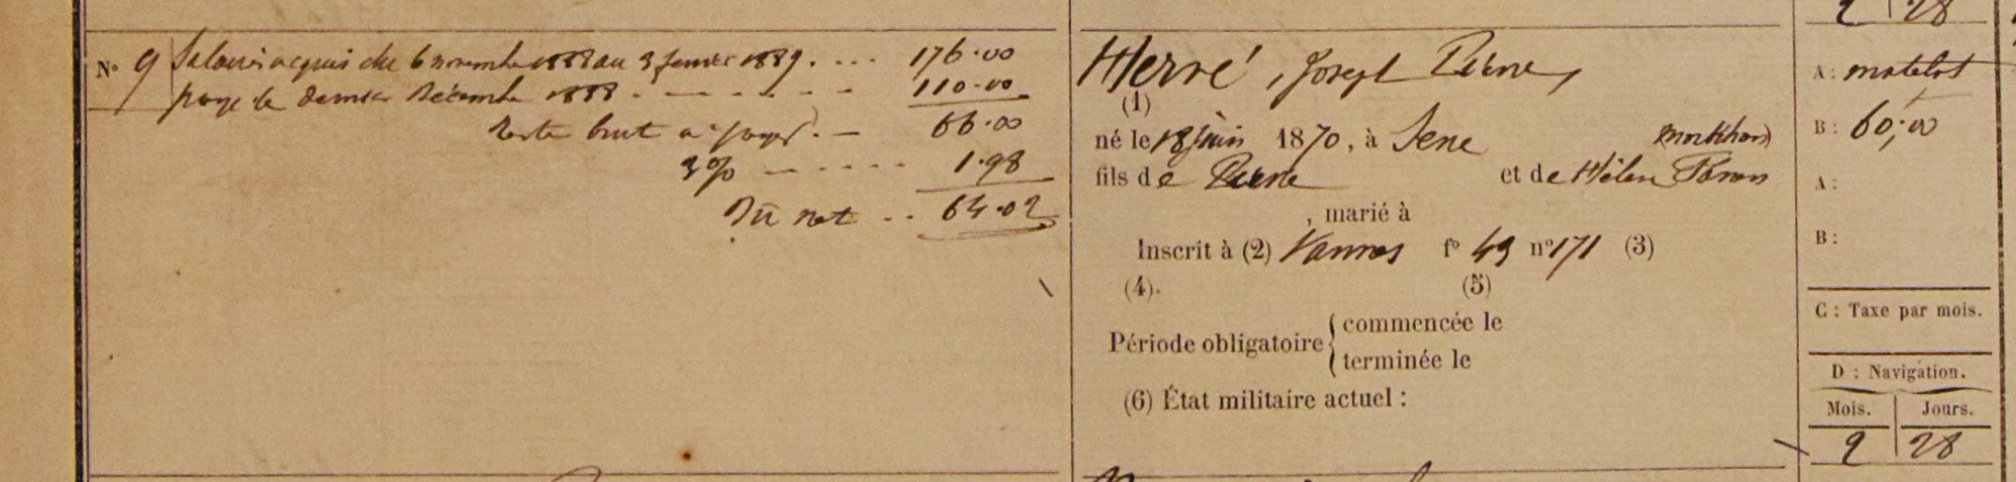 N° 9 Salaires acquis du 6 novembre 1888 au 3 fevrier 1889. ... 176.00
paye le dernier Décembre 1888 - - - - - - 110.00
Reste brut a payer. - 66.00
3% - - - - - 1.98
Dû net .. 64.02
Hervé, Joseph Pierre,
(1)
né le 18 juin 1870, à Séné Morbihan
fils de Pierre et de Hélène
, marié à
Inscrit à (2) Vannes f° 49 n° 171 (3)
(4). (5)
Période obligatoire { commencée le
terminée le
(6) État militaire actuel :
2 | 28
A : matelot
B : 60,00
A :
B :
C : Taxe par mois.
D : Navigation.
Mois. Jours.
2 28